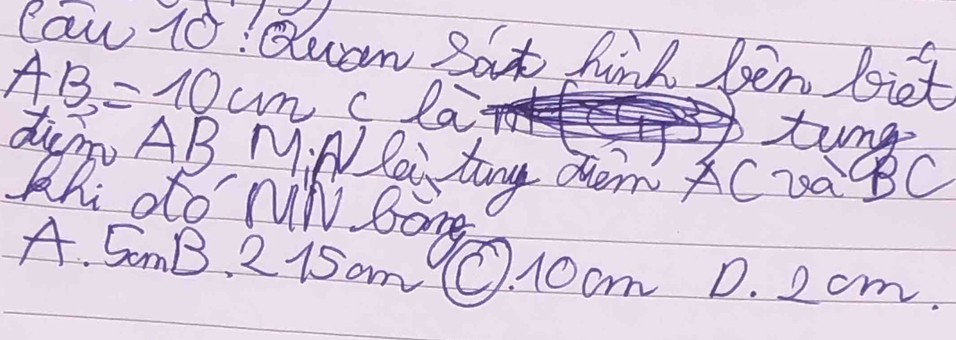 Câu 10: Quan sát hình bên biết
AB = 10 cm C là tung
điểm AB M; N là tung điểm AC và BC
khi đó MN bằng
A. 5cm B. 2 15cm C. 10cm D. 2 cm.